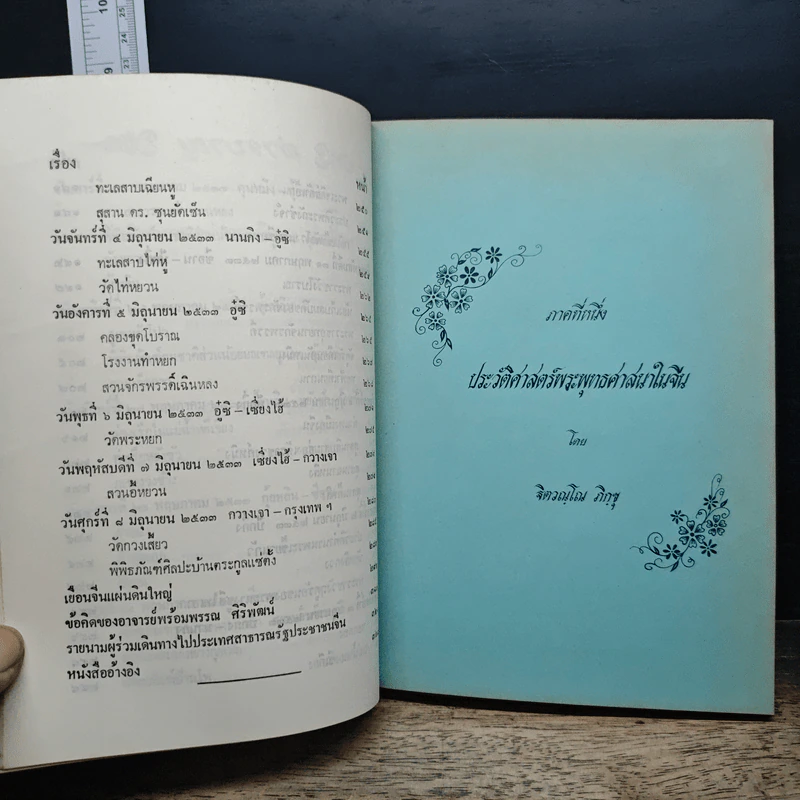 เรื่อง
หน้า
ทะเลสาบเฉียนหู
สุสาน ดร. ซุนยัดเซ็น
วันจันทร์ที่ ๔ มิถุนายน ๒๕๓๓ นานกิง – อู๋ซิ
ทะเลสาบไท่หู
วัดไท่หยวน
วันอังคารที่ ๕ มิถุนายน ๒๕๓๓ อู๋ซิ
คลองขุดโบราณ
โรงงานทำหยก
สวนจักรพรรดิ์เฉินหลง
วันพุธที่ ๖ มิถุนายน ๒๕๓๓ อู๋ซิ – เซี่ยงไฮ้
วัดพระหยก
วันพฤหัสบดีที่ ๗ มิถุนายน ๒๕๓๓ เซี่ยงไฮ้ – กวางเจา
สวนอี้หยวน
วันศุกร์ที่ ๘ มิถุนายน ๒๕๓๓ กวางเจา – กรุงเทพ ฯ
วัดกวงเสี้ยว
พิพิธภัณฑ์ศิลปะบ้านตระกูลแซ่ตั้ง
เยือนจีนแผ่นดินใหญ่
ข้อคิดของอาจารย์พร้อมพรรณ ศิริพัฒน์
รายนามผู้ร่วมเดินทางไปประเทศสาธารณรัฐประชาชนจีน
หนังสืออ้างอิง
ภาคที่หนึ่ง
ประวัติศาสตร์พระพุทธศาสนาในจีน
โดย
ฐิตวณฺโณ ภิกฺขุ